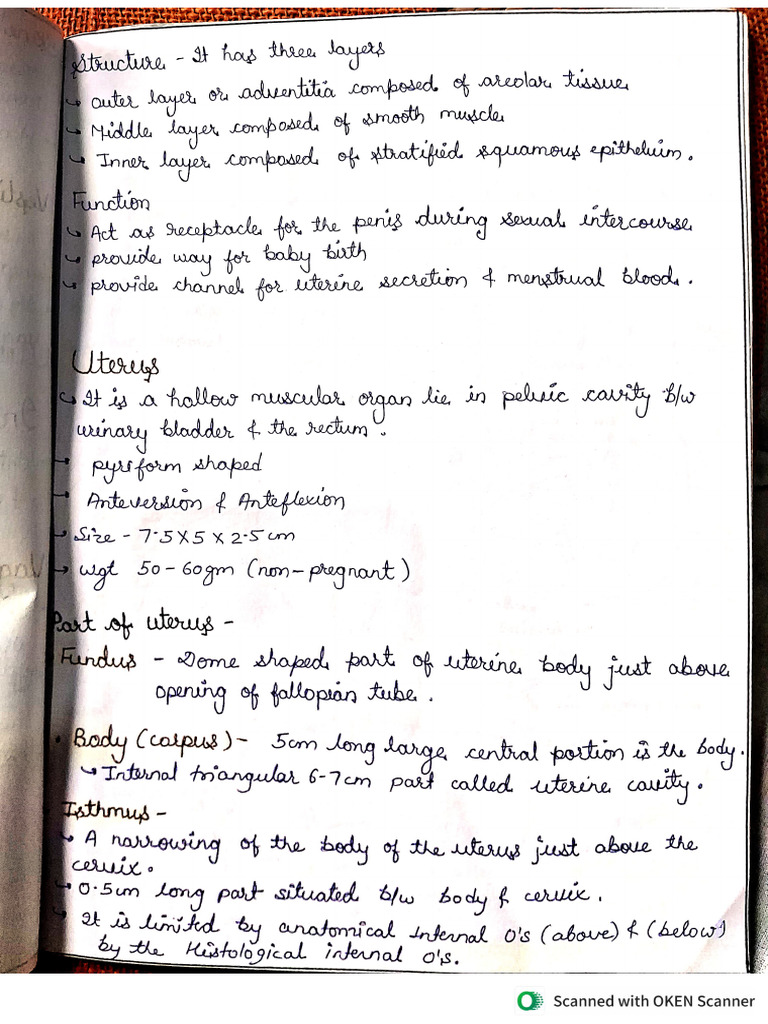 Structure - It has three layers
↳ outer layer or adventitia composed of areolar tissue
↳ Middle layer composed of smooth muscle
↳ Inner layer composed of stratified squamous epitheluim.
Function
↳ Act as receptacle for the penis during sexual intercourse
↳ provide way for baby birth
↳ provide channel for uterine secretion & menstrual blood.
Uterus
↳ It is a hollow muscular organ lie in pelvic cavity b/w
urinary bladder & the rectum.
→ pyriform shaped
→ Anteversion & Anteflexion
→ Size - 7.5 X 5 X 2.5 cm
→ wgt 50-60gm (non-pregnant)
Part of uterus -
Fundus - Dome shaped part of uterine body just above
opening of fallopian tube.
• Body (corpus) - 5cm long large central portion is the body.
↳ Internal triangular 6-7cm part called uterine cavity.
Isthmus -
↳ A narrowing of the body of the uterus just above the
cervix.
→ 0.5cm long part situated b/w body & cervix.
↳ It is limited by anatomical internal O's (above) & (below)
by the Histological internal O's.
Scanned with OKEN Scanner